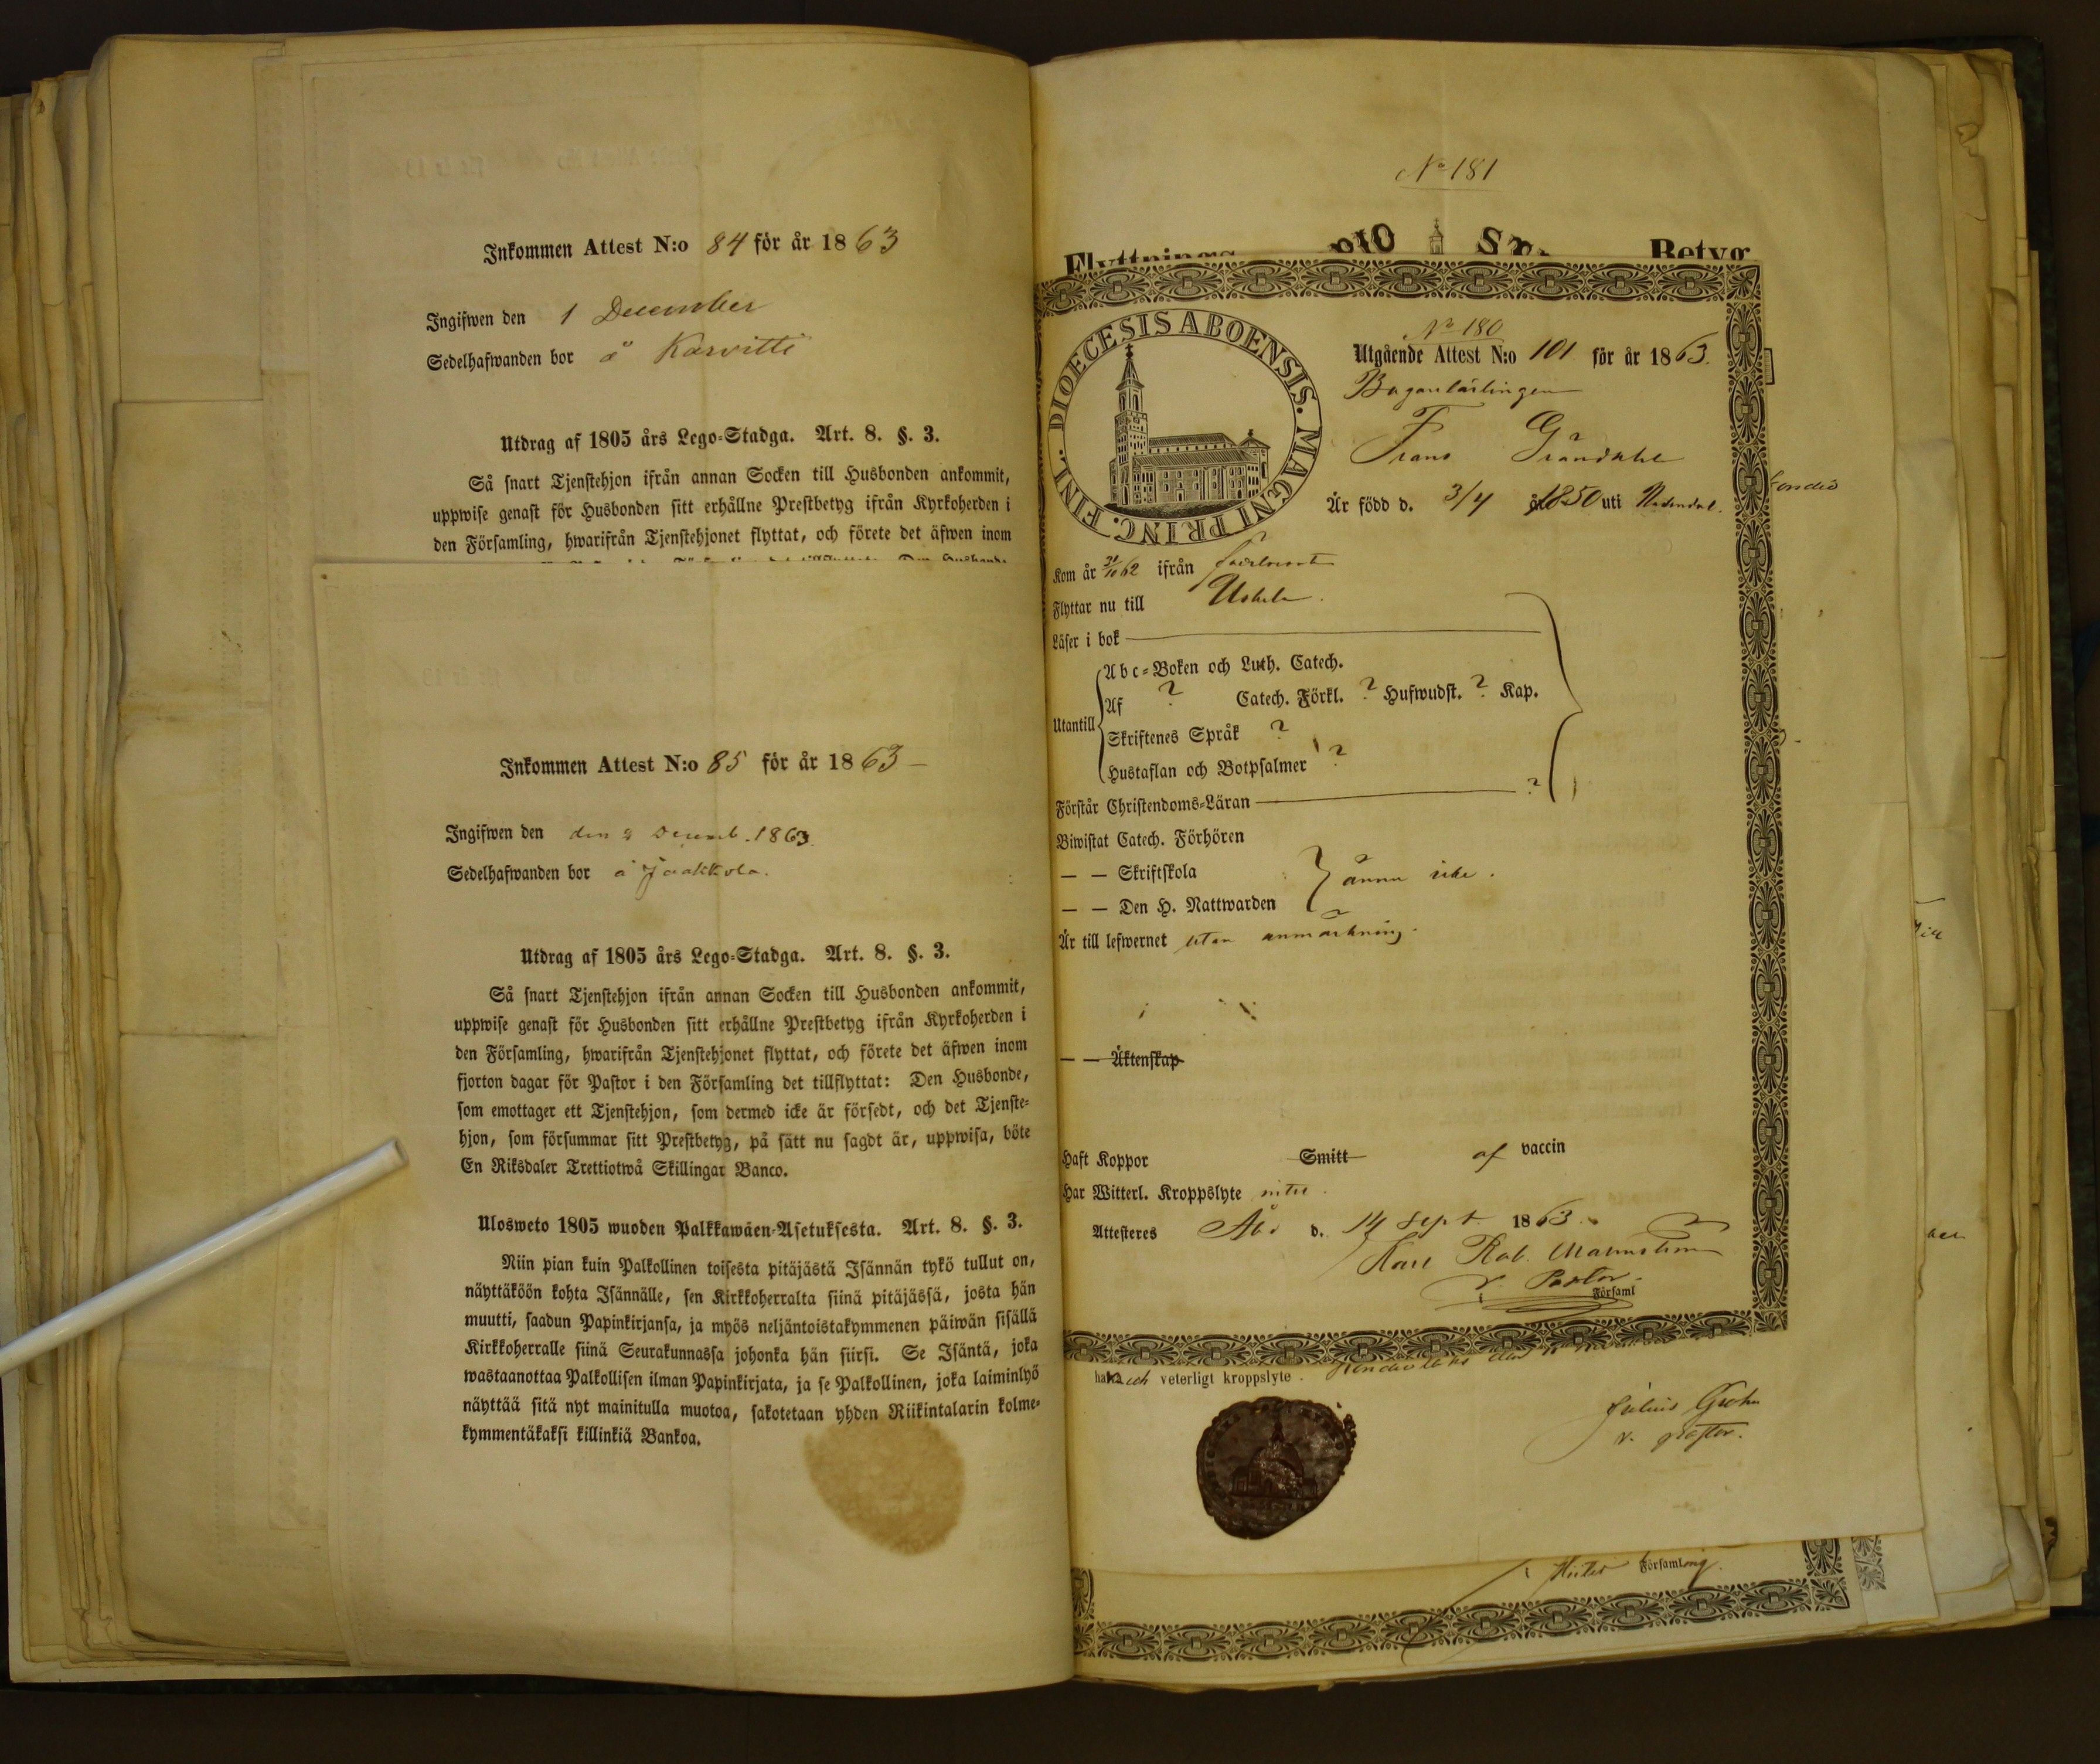 Inkommen Attest N:o 84 för år 1863
Ingifwen den 1 December
Sedelhafwanden bor å Karvitti
Utdrag af 1805 års Lego-Stadga. Art. 8. §. 3.
Så snart Tjenstehjon ifrån annan Socken till Husbonden ankommit,
uppwise genast för Husbonden sitt erhållne Prestbetyg ifrån Kyrkoherden i
den Församling, hwarifrån Tjenstehjonet flyttat, och förete det äfwen inom
Inkommen Attest N:o 85 för år 1863 –
Ingifwen den den 8 Decemb. 1863.
Sedelhafwanden bor å Jaakkola.
Utdrag af 1805 års Lego-Stadga. Art. 8. §. 3.
Så snart Tjenstehjon ifrån annan Socken till Husbonden ankommit,
uppwise genast för Husbonden sitt erhållne Prestbetyg ifrån Kyrkoherden i
den Församling, hwarifrån Tjenstehjonet flyttat, och förete det äfwen inom
fjorton dagar för Pastor i den Församling det tillflyttat: Den Husbonde,
som emottager ett Tjenstehjon, som dermed icke är försedt, och det Tjenste-
hjon, som försummar sitt Prestbetyg, på sätt nu sagdt är, uppwisa, böte
En Riksdaler Trettiotwå Skillingar Banco.
Ulosweto 1805 wuoden Palkkawäen-Asetuksesta. Art. 8. §. 3.
Niin pian kuin Palkollinen toisesta pitäjästä Isännän tykö tullut on,
näyttäköön kohta Isännälle, sen Kirkkoherralta siinä pitäjässä, josta hän
muutti, saadun Papinkirjansa, ja myös neljäntoistakymmenen päiwän sisällä
Kirkkoherralle siinä Seurakunnassa johonka hän siirsi. Se Isäntä, joka
wastaanottaa Palkollisen ilman Papinkirjata, ja se Palkollinen, joka laiminlyö
näyttää sitä nyt mainitulla muotoa, sakotetaan yhden Riikintalarin kolme-
kymmentäkaksi killinkiä Bankoa.
No 181
Flyttnings Betyg
DIOECESIS ABOENSIS. MAGNI PRINC. FINL.
No 180
Utgående Attest N:o 101 för år 1863.
Bagarlärlingen
Frans Grändahl
Är född d. 3/4 1850 uti Nådendal.
Kom år 31/10 62 ifrån
Flyttar nu till Uskela.
Läser i bok
Utantill
Abc-Boken och Luth. Catech.
Af ? Catech. Förkl. ? Hufwudst. ? Kap.
Skriftenes Språk ?
Hustaflan och Botpsalmer ?
Förstår Christendoms-Läran ?
Biwistat Catech. Förhören
— — Skriftskola
ännu icke.
— — Den H. Nattwarden
Är till lefwernet utan anmärkning.
— — Äktenskap
Haft Koppor Smitt af vaccin
Har Witterl. Kroppslyte intet.
Attesteres Åbo d. 14 Sept. 1863.
Karl Rob. Malmström
v. Pastor.
i Församl
veterligt kroppslyte.
Julius Grohn
v. Pastor.
i Församling.